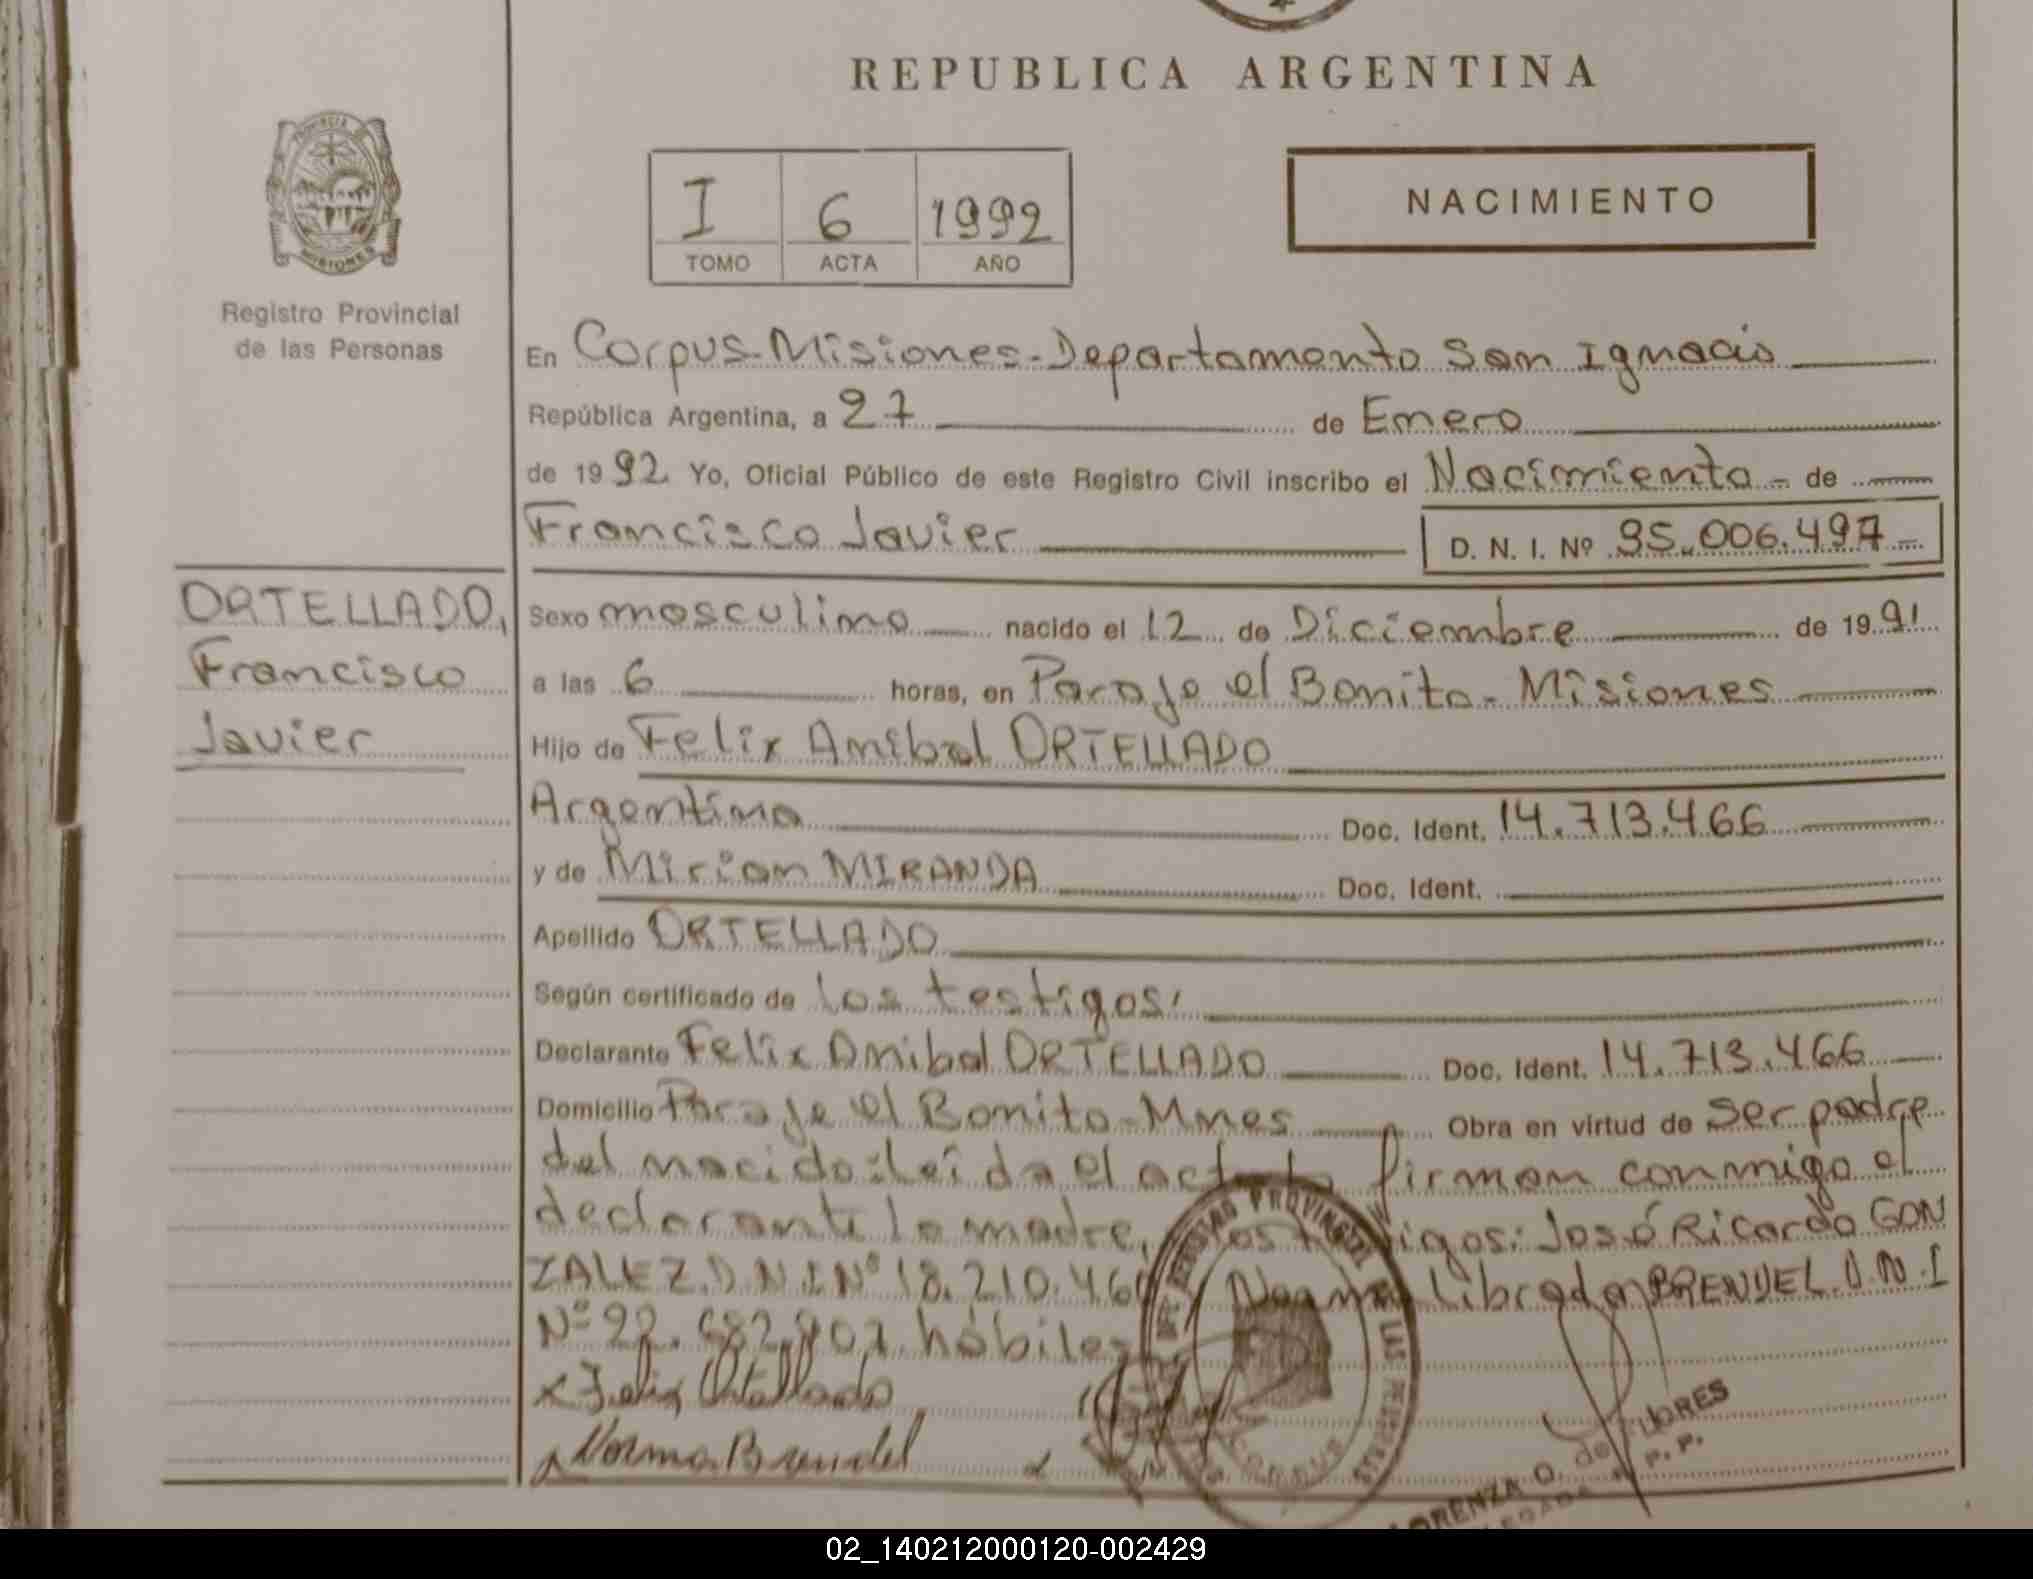 REPUBLICA ARGENTINA
PROVINCIA DE MISIONES
Registro Provincial
de las Personas
I 6 1992
TOMO ACTA AÑO
NACIMIENTO
En Corpus-Misiones-Departamento San Ignacio
República Argentina, a 27 de Enero
de 1992 Yo, Oficial Público de este Registro Civil inscribo el Nacimiento - de
Francisco Javier
D. N. I. Nº 35.006.497-
ORTELLADO,
Francisco
Javier
Sexo masculino nacido el 12 de Diciembre de 1991
a las 6 horas, en Paraje el Bonito-Misiones
Hijo de Felix Anibal ORTELLADO
Argentino Doc. Ident. 14.713.466
y de Mirian MIRANDA Doc. Ident.
Apellido ORTELLADO
Según certificado de los testigos.
Declarante Felix Anibal ORTELLADO Doc. Ident. 14.713.466
Domicilio Paraje el Bonito-Mnes Obra en virtud de ser padre
del nacido: leida el acta firman conmigo el
declarante la madre, José Ricardo GON
ZALEZ.D.N.I Nº 18.210.46 Norma Librada BRENDEL.D.N.I
Nº hábiles
x Felix Ortellado
Norma Brendel
REGISTRO PROVINCIAL DE LAS PERSONAS
CORPUS
LORENZA O. de FLORES
02_140212000120-002429